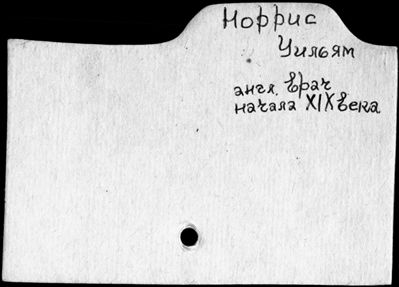 Норрис
Уильям
англ. врач
начала XIX века